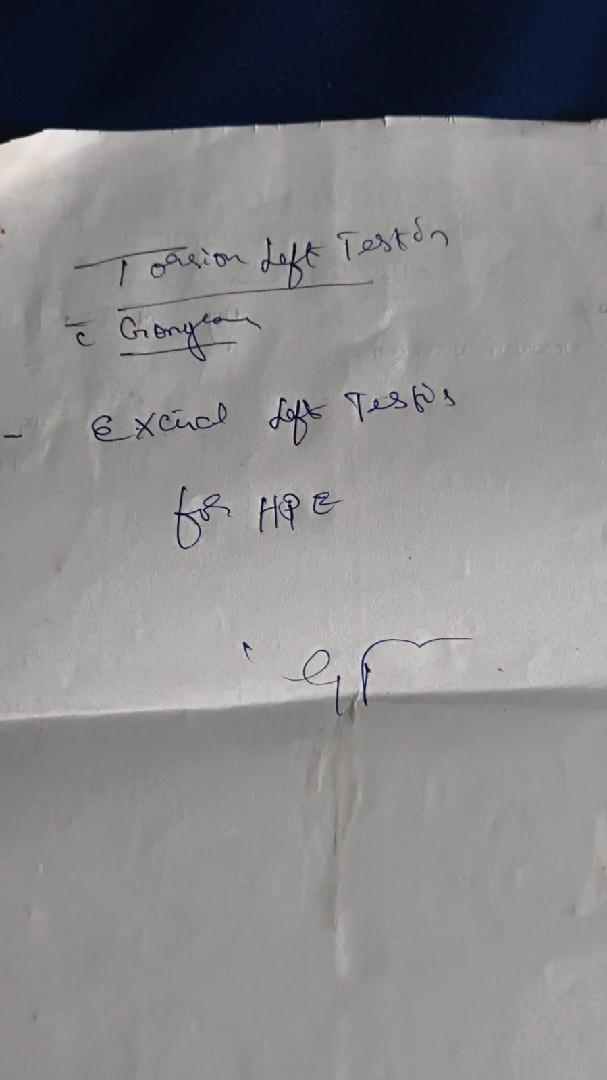 Torsion Left Testis
c̄ Gangrene
- Excised Left Testis
for HPE